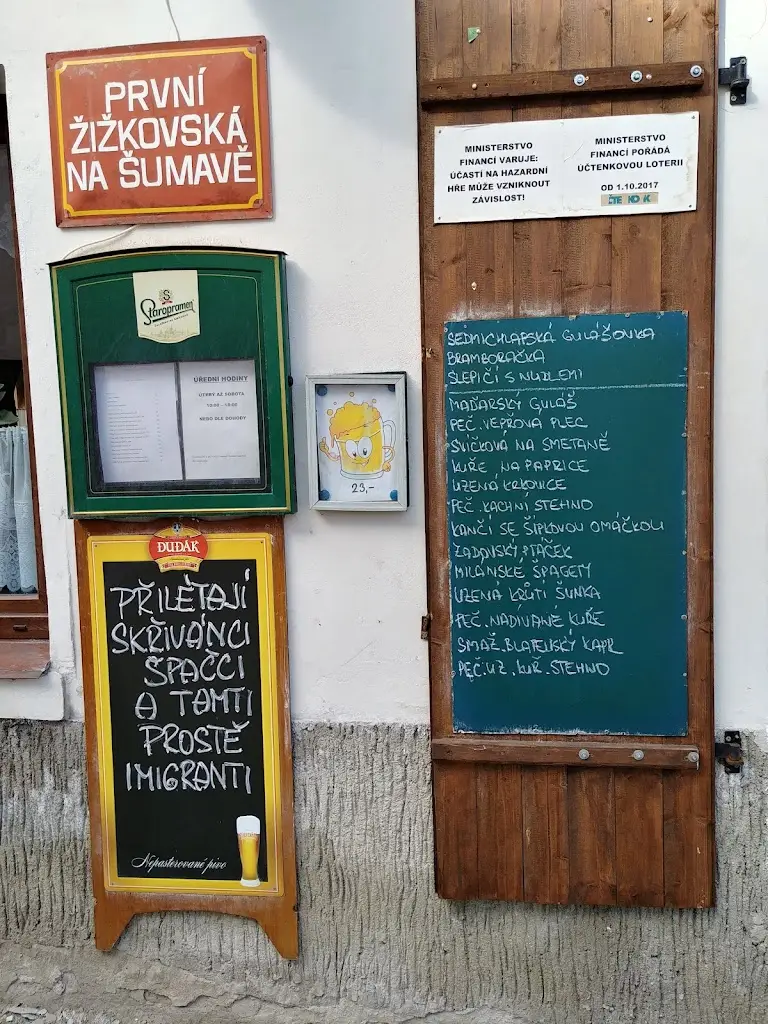 PRVNÍ
ŽIŽKOVSKÁ
NA ŠUMAVĚ
MINISTERSTVO
FINANCÍ VARUJE:
ÚČASTÍ NA HAZARDNÍ
HŘE MŮŽE VZNIKNOUT
ZÁVISLOST!
MINISTERSTVO
FINANCÍ POŘÁDÁ
ÚČTENKOVOU LOTERII
OD 1.10.2017
Staropramen
ÚŘEDNÍ HODINY
ÚTERÝ AŽ SOBOTA
NEBO DLE DOHODY
23,-
DUDÁK
PŘILÉTAJÍ
SKŘIVÁNCI
ŠPAČCI
A TAMTI
PROSTĚ
IMIGRANTI
Nepasterované pivo
SEDMICHLAPSKÁ GULÁŠOVKA
BRAMBORAČKA
SLEPIČÍ S NUDLEMI
MAĎARSKÝ GULÁŠ
PEČ. VEPŘOVÁ PLEC
SVÍČKOVÁ NA SMETANĚ
KUŘE NA PAPRICE
UZENÁ KRKOVICE
PEČ. KACHNÍ STEHNO
KANČÍ SE ŠÍPKOVOU OMÁČKOU
MILÁNSKÉ ŠPAGETY
UZENÁ KRŮTÍ ŠUNKA
PEČ. NADÍVANÉ KUŘE
SMAŽ. BLATENSKÝ KAPR
PEČ. UZ. KUŘ. STEHNO